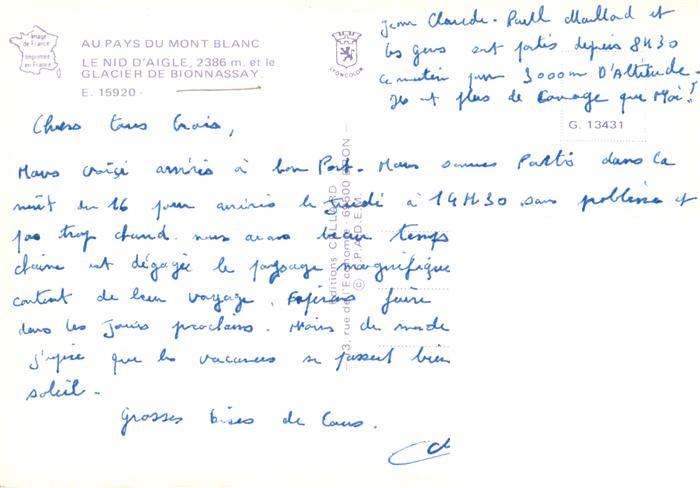 image
de France
imprimée
en France
AU PAYS DU MONT BLANC
LE NID D'AIGLE, 2386 m. et le
GLACIER DE BIONNASSAY.
E. 15920 -
LYONCOLOR
Jean Claude - Paul Maillard et
les gens ont partis depuis 8H30
ce matin pour 3000m D'Altitude -
Ils ont plus de courage que Moi!
G. 13431
Editions CELLARD
3, rue de l'Economie - 69500 BRON -
© S.P.A.D.E.M.
Chers tous trois,
Nous voici arrivés à bon Port. Nous sommes Partis dans la
nuit du 16 pour arrivés le à 14H30 sans problèmes et
pas trop chaud. nous avons beau temps
chaine est dégagée le paysage magnifique
content de leur voyage. faire
dans les Jours prochains. Moins de monde
j'espère que les vacances se passent bien
soleil -
Grosses bises de tous.